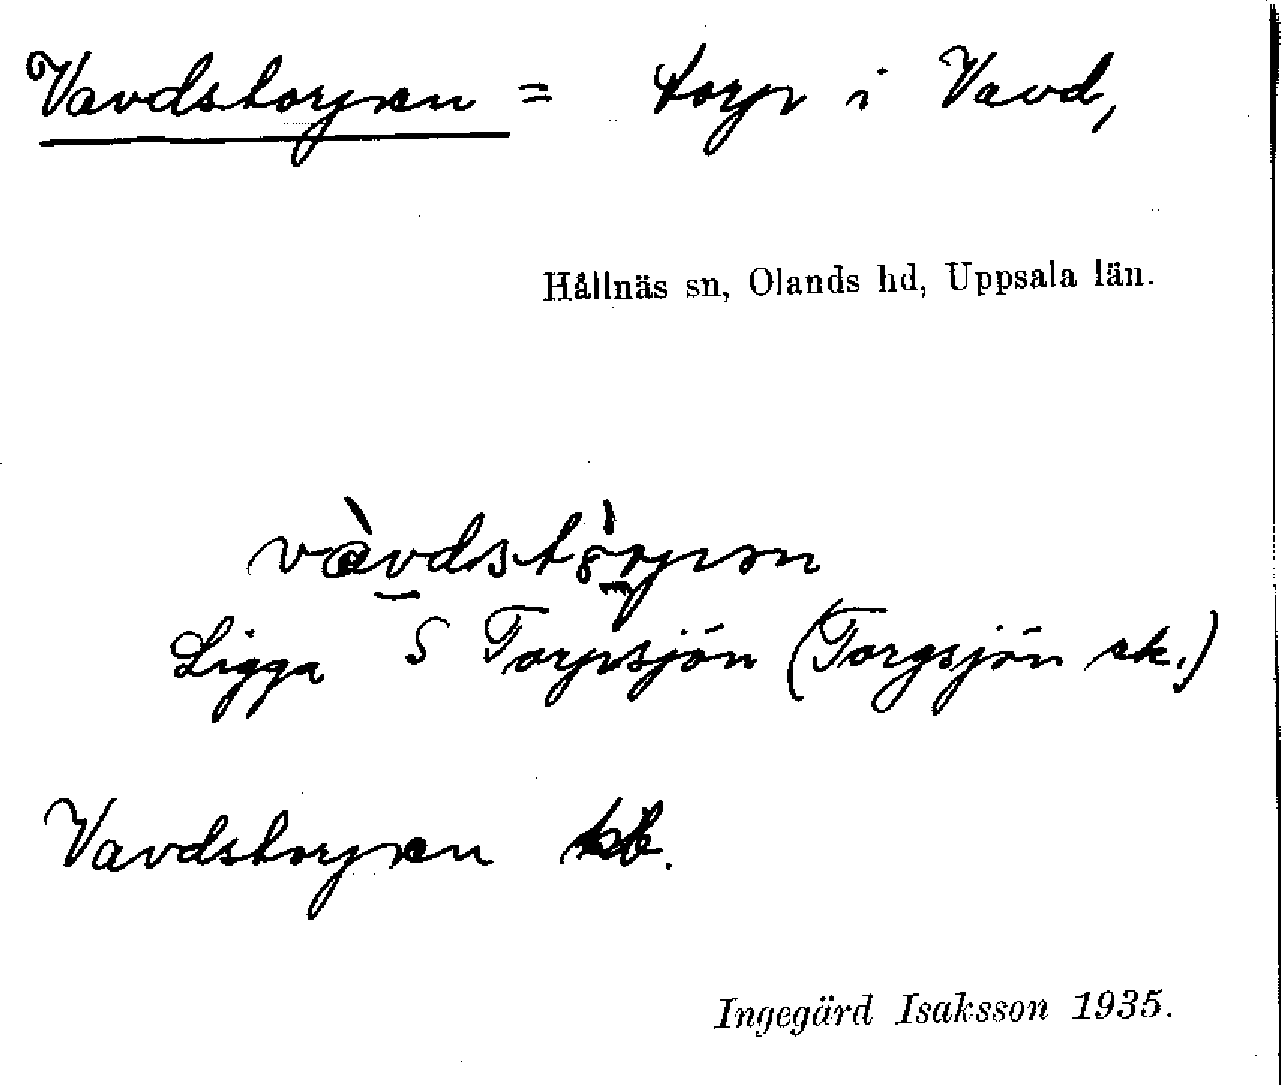 Vavdstorpen = torp i Vavd,
Hållnäs sn, Olands hd, Uppsala län.
Ligga S Torpsjön (Torgsjön ek.)
Vavdstorpen
Ingegärd Isaksson 1935.